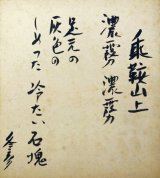 乗鞍山上
濃霧濃霧
足元の
灰色の
しめった冷たい石塊